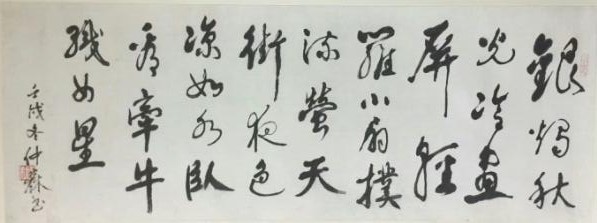 銀燭秋
光冷畫
屏輕
羅小扇撲
流螢天
街夜色
涼如水臥
看牽牛
織女星
壬戌冬仲